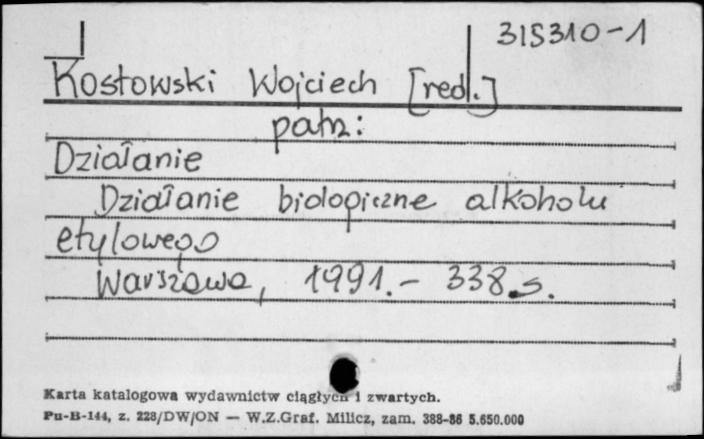 315310-1
Kostowski Wojciech [red.]
patrz:
Działanie
Działanie biologiczne alkoholu
etylowego
Warszawa, 1991.- 338 s.
Karta katalogowa wydawnictw ciągłych i zwartych.
Pu-B-144, z. 228/DW/ON — W.Z.Graf. Milicz, zam. 388-86 5.650.000